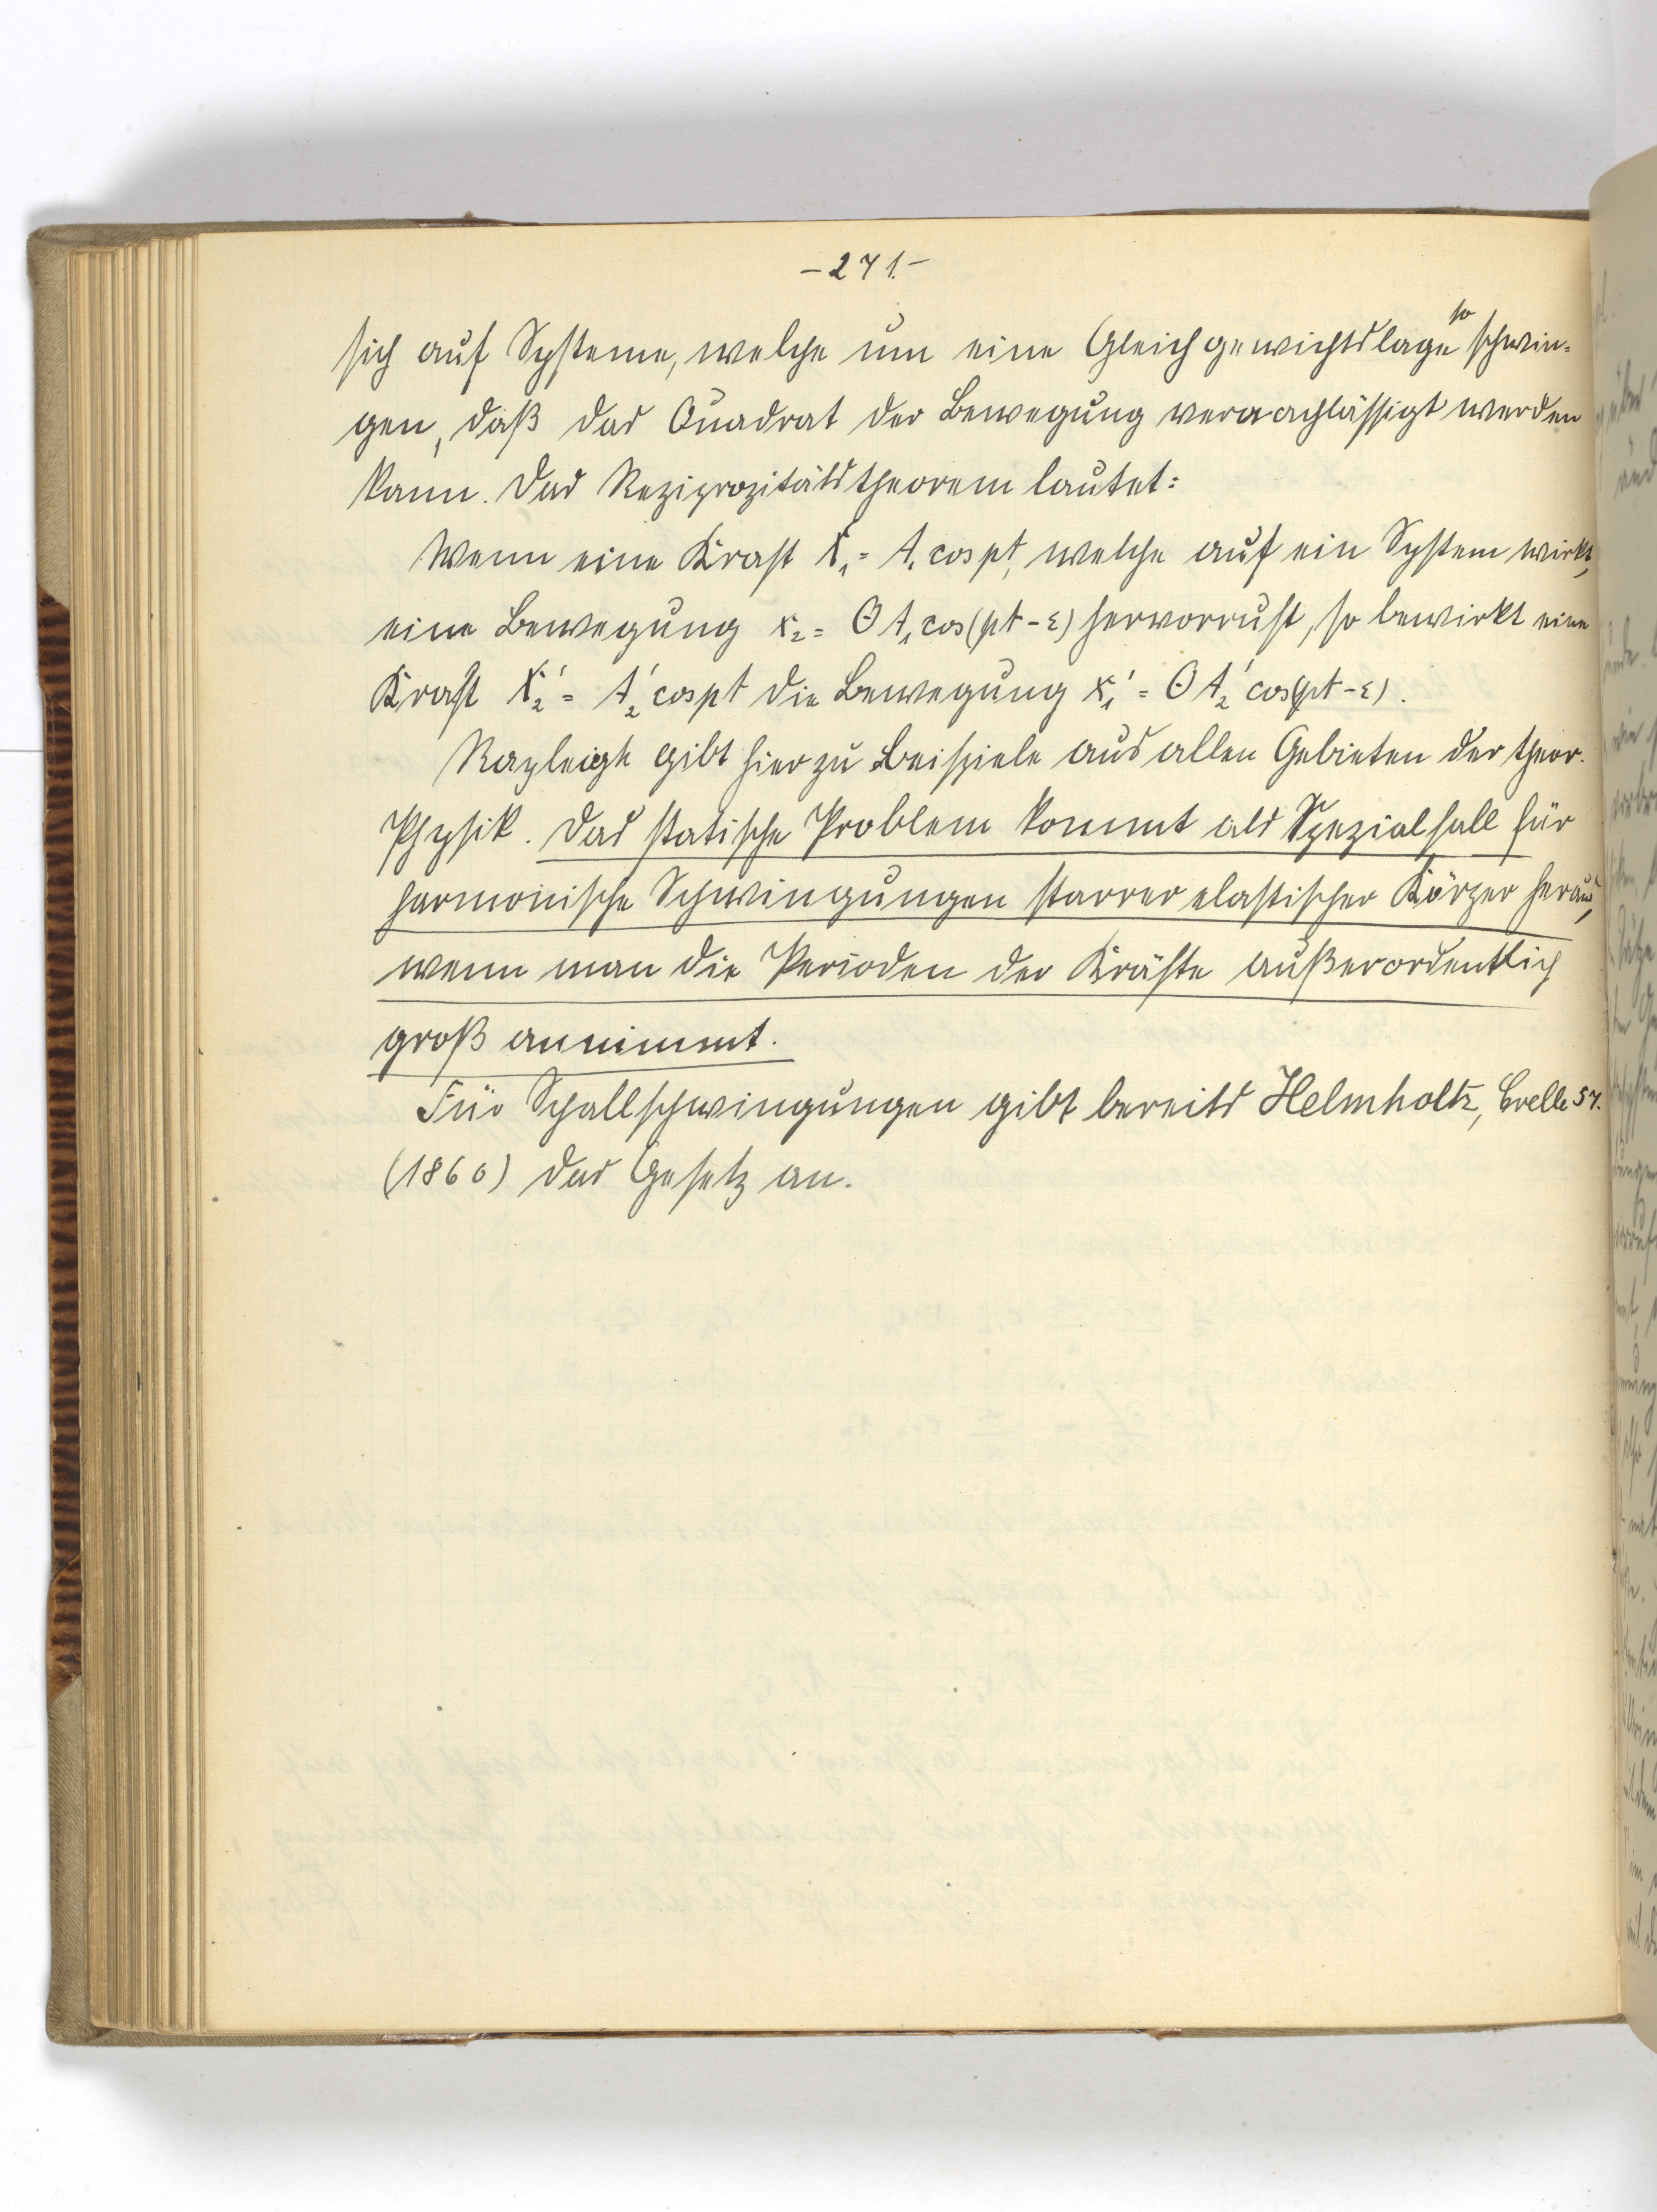 - 271. -
sich auf Systeme, welche um eine Gleichgewichtslage so schwin-
gen, daß das Quadrat der Bewegung vernachlässigt werden
kann. Das Reziprozitätstheorem lautet:
Wenn eine Kraft X₁ = A₁ cos pt, welche auf ein System wirkt,
eine Bewegung x₂ = Θ A₁ cos (pt - ε) hervorruft, so bewirkt eine
Kraft X₂' = A₂' cos pt die Bewegung x₁' = Θ A₂' cos (pt - ε).
Rayleigh gibt hierzu Beispiele aus allen Gebieten der theor.
Physik. Das statische Problem kommt als Spezialfall für
harmonische Schwingungen starrer elastischer Körper heraus,
wenn man die Perioden der Kräfte außerordentlich
groß annimmt.
Für Schallschwingungen gibt bereits Helmholtz, Crelle 57.
(1860) das Gesetz an.